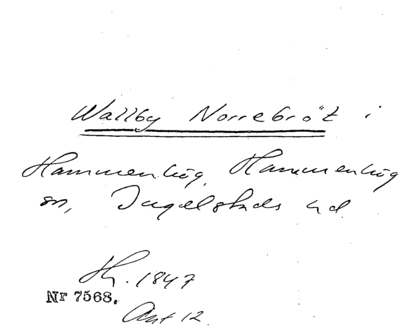 Wallby Norrebröt i
Hammenhög, Hammenhög
sn, Ingelstads hd.
Sk. 1847
Nr 7568.
Ant 12.